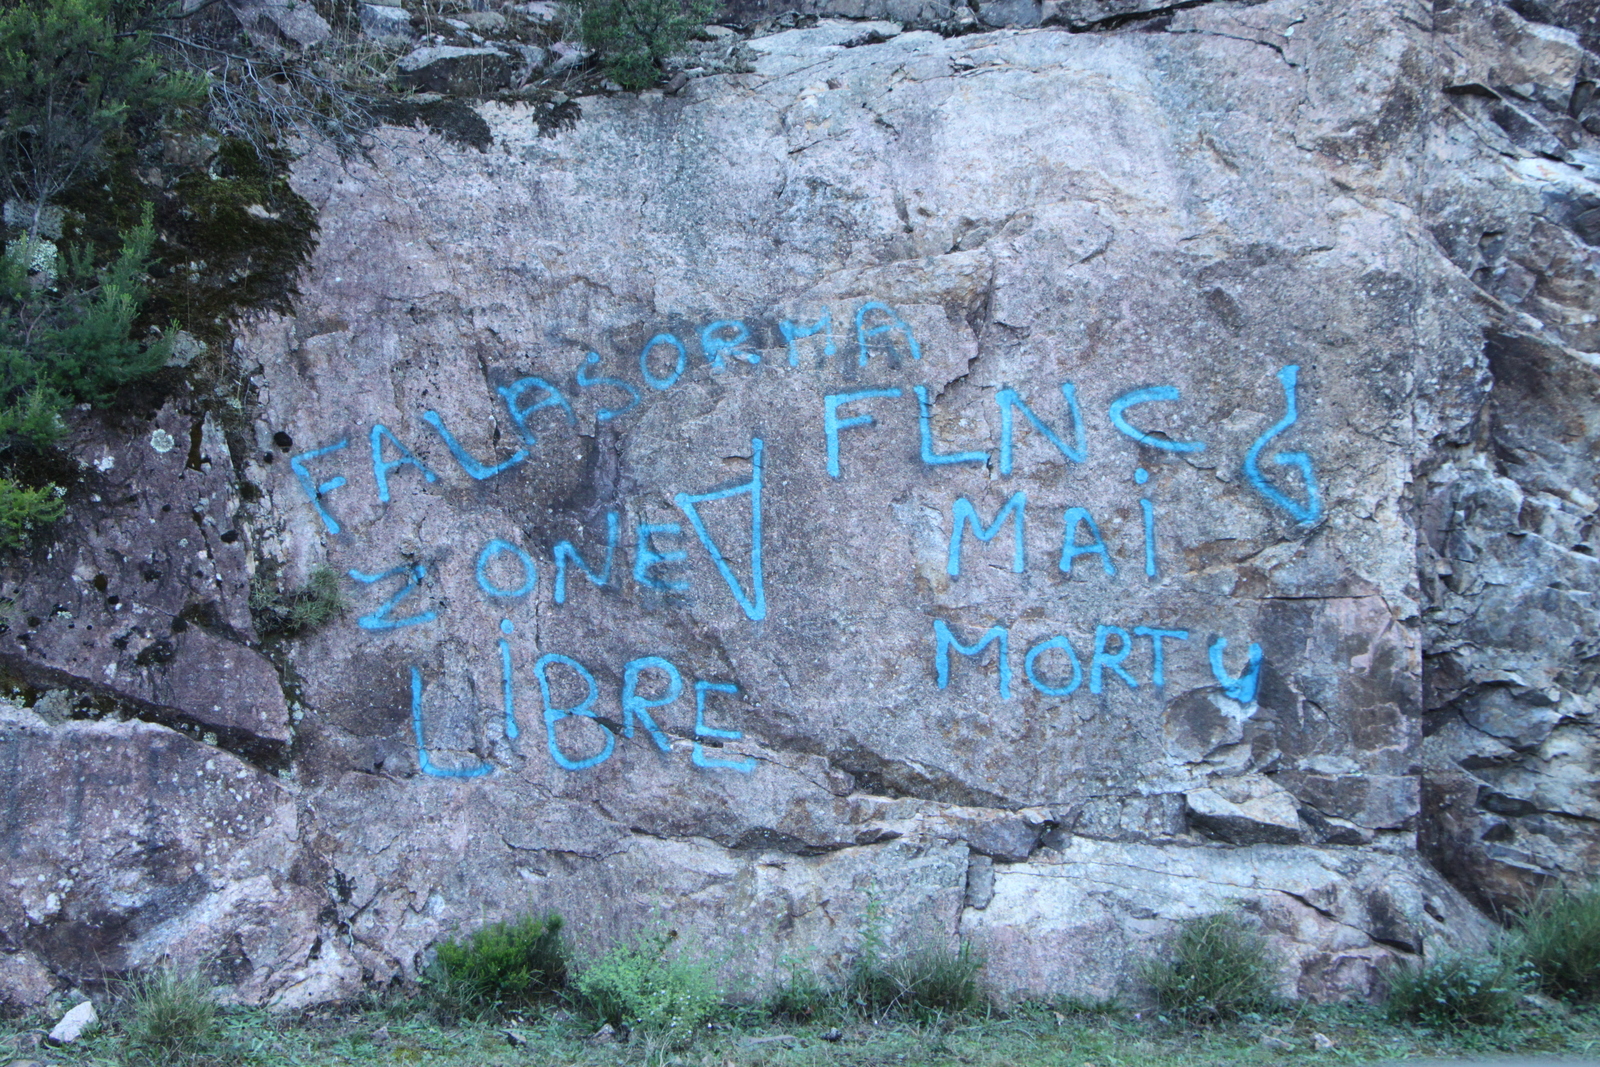 FALASORMA
ZONE
LIBRE
FLNC
MAI
MORTU